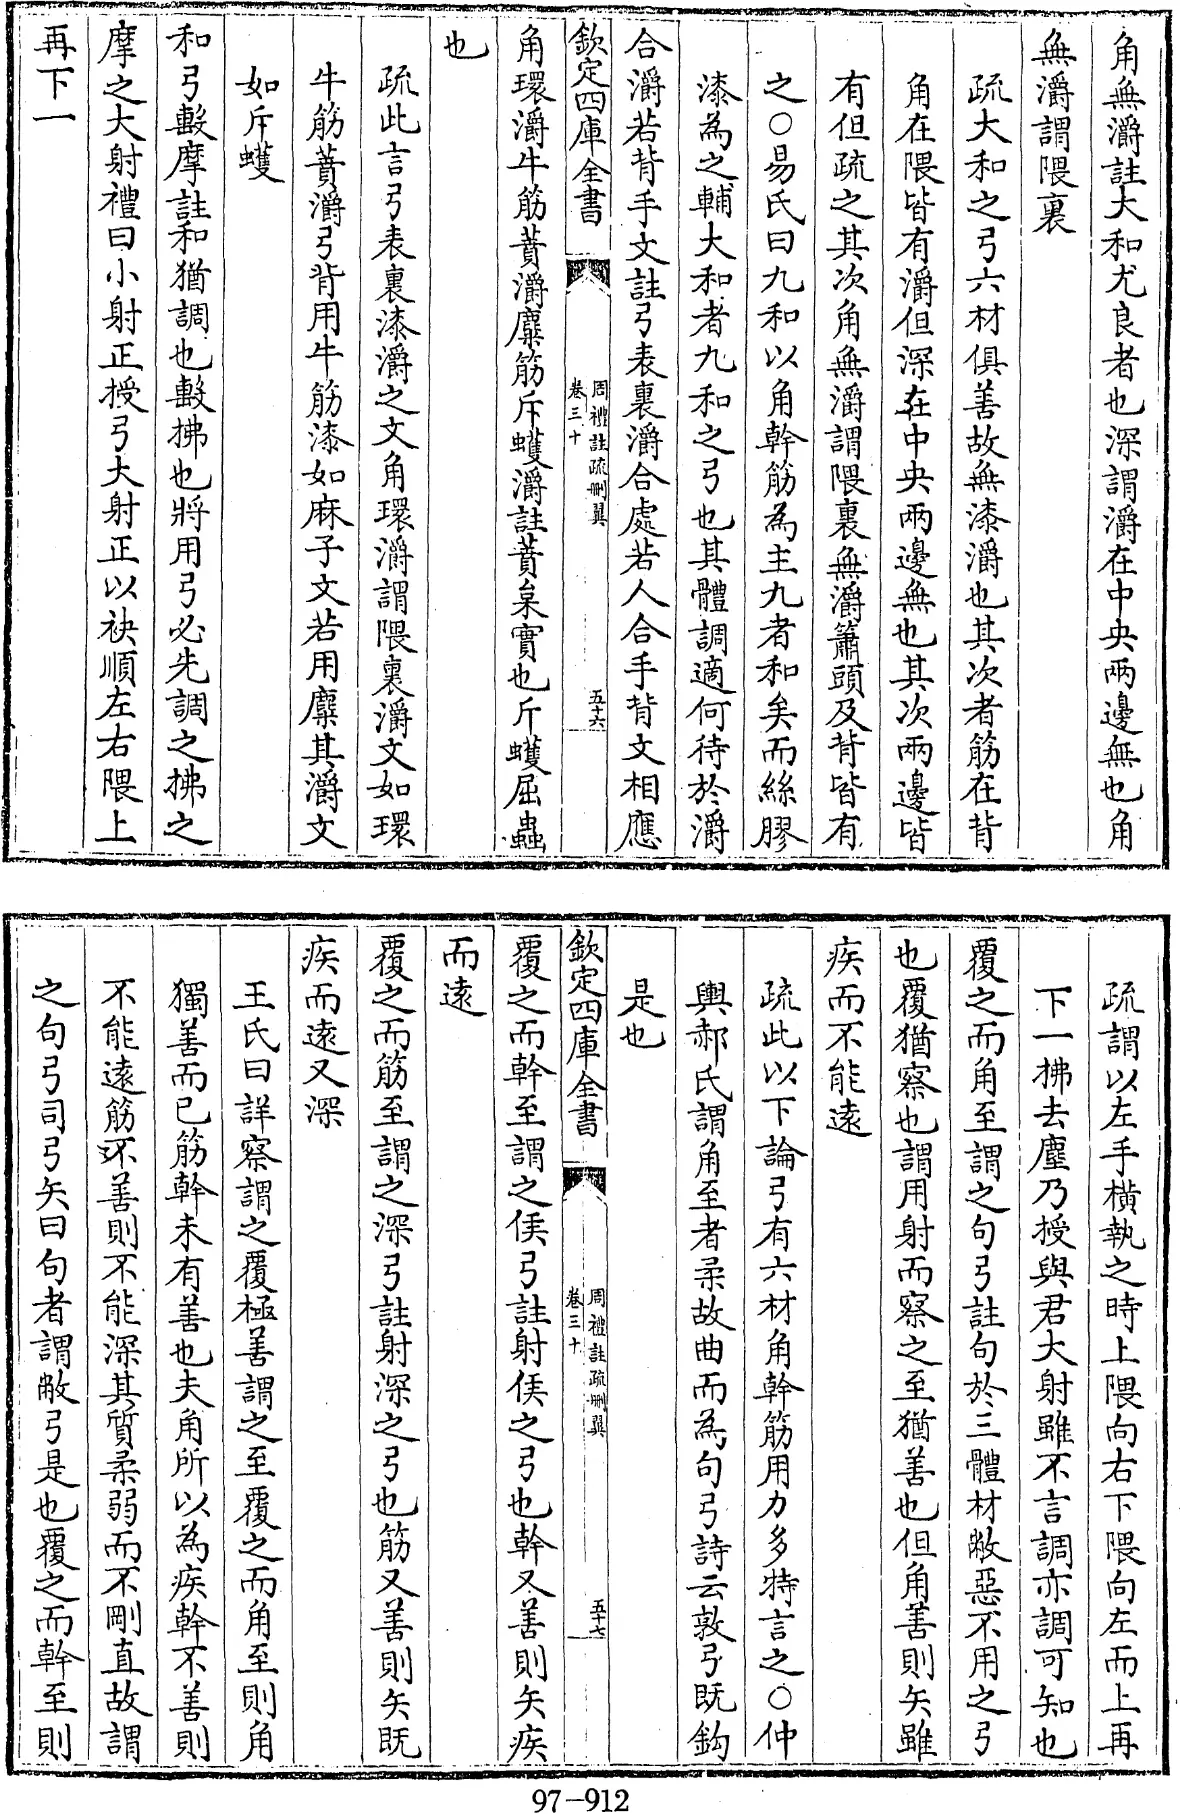 角無灂註大和尤良者也深謂灂在中央兩邊無也角
無灂謂隈裏
疏大和之弓六材俱善故無漆灂也其次者筋在背
角在隈皆有灂但深在中央兩邊無也其次兩邊皆
有但疏之其次角無灂謂隈裏無灂簫頭及背皆有
之○易氏曰九和以角幹筋為主九者和矣而絲膠
漆為之輔大和者九和之弓也其體調適何待於灂
合灂若背手文註弓表裏灂合處若人合手背文相應
欽定四庫全書
周禮註疏刪翼
卷三十
五十六
角環灂牛筋蕡灂麋筋斥蠖灂註蕡枲實也斥蠖屈蟲
也
疏此言弓表裏漆灂之文角環灂謂隈裏灂文如環
牛筋蕡灂弓背用牛筋漆如麻子文若用麋其灂文
如斥蠖
和弓轚摩註和猶調也轚拂也將用弓必先調之拂之
摩之大射禮曰小射正授弓大射正以袂順左右隈上
再下一
疏謂以左手橫執之時上隈向右下隈向左而上再
下一拂去塵乃授與君大射雖不言調亦調可知也
覆之而角至謂之句弓註句於三體材敝惡不用之弓
也覆猶察也謂用射而察之至猶善也但角善則矢雖
疾而不能遠
疏此以下論弓有六材角幹筋用力多特言之○仲
輿郝氏謂角至者柔故曲而為句弓詩云敦弓既鈎
是也
欽定四庫全書
周禮註疏刪翼
卷三十
五十七
覆之而幹至謂之侯弓註射侯之弓也幹又善則矢疾
而遠
覆之而筋至謂之深弓註射深之弓也筋又善則矢既
疾而遠又深
王氏曰詳察謂之覆極善謂之至覆之而角至則角
獨善而已筋幹未有善也夫角所以為疾幹不善則
不能遠筋不善則不能深其質柔弱而不剛直故謂
之句弓司弓矢曰句者謂敝弓是也覆之而幹至則
97-912